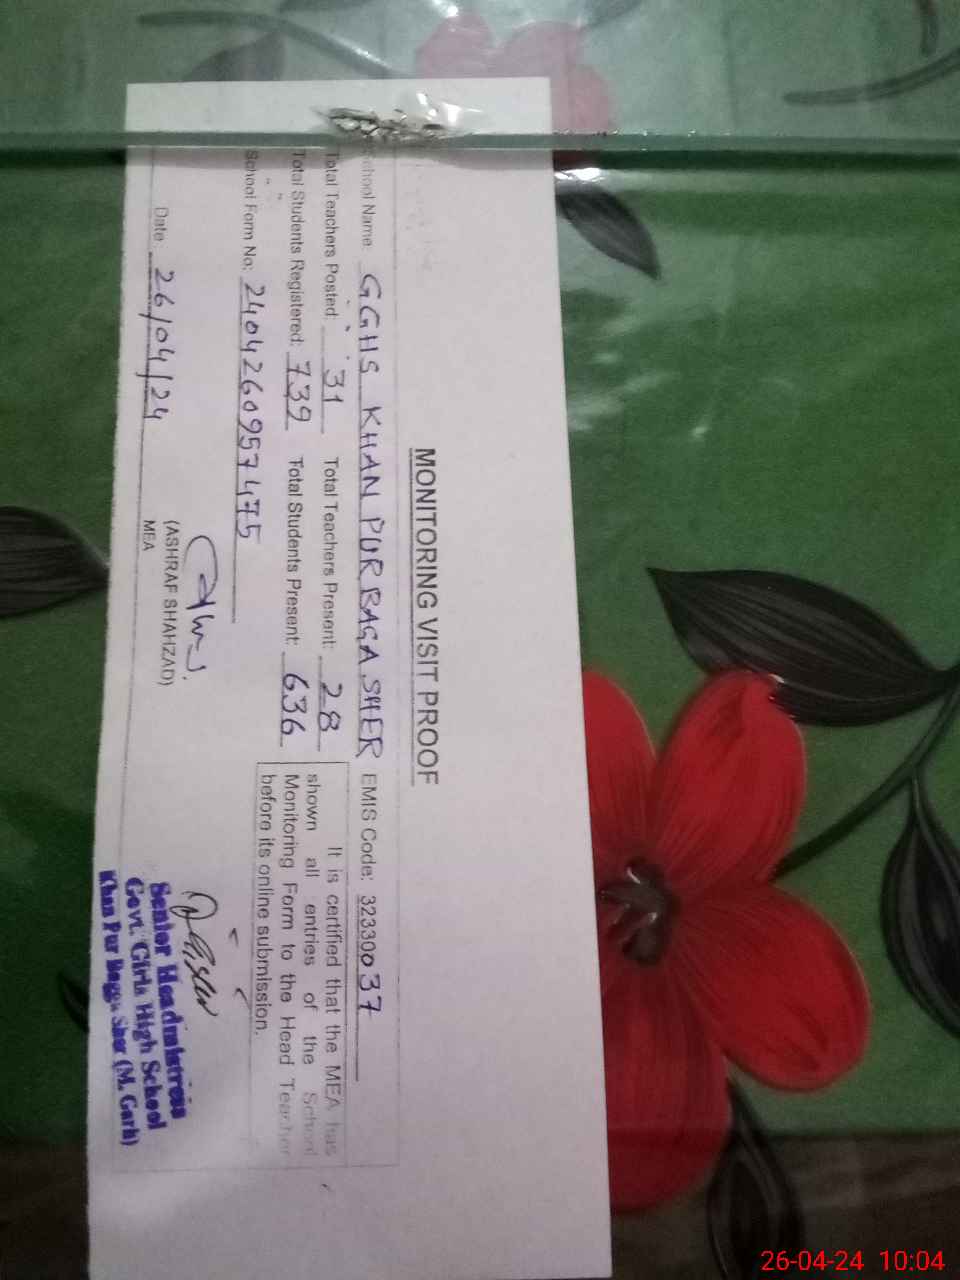 MONITORING VISIT PROOF
School Name: GGHS KHAN PUR BAGA SHER EMIS Code: 32330037
Total Teachers Posted: 31 Total Teachers Present: 28
Total Students Registered: 739 Total Students Present: 636
School Form No: 2404260957475
It is certified that the MEA has
shown all entries of the School
Monitoring Form to the Head Teacher
before its online submission.
Date: 26/04/24
(ASHRAF SHAHZAD)
MEA
Senior Headmistress
Govt. Girls High School
Khan Pur Bagga Sher (M. Garh)
26-04-24 10:04